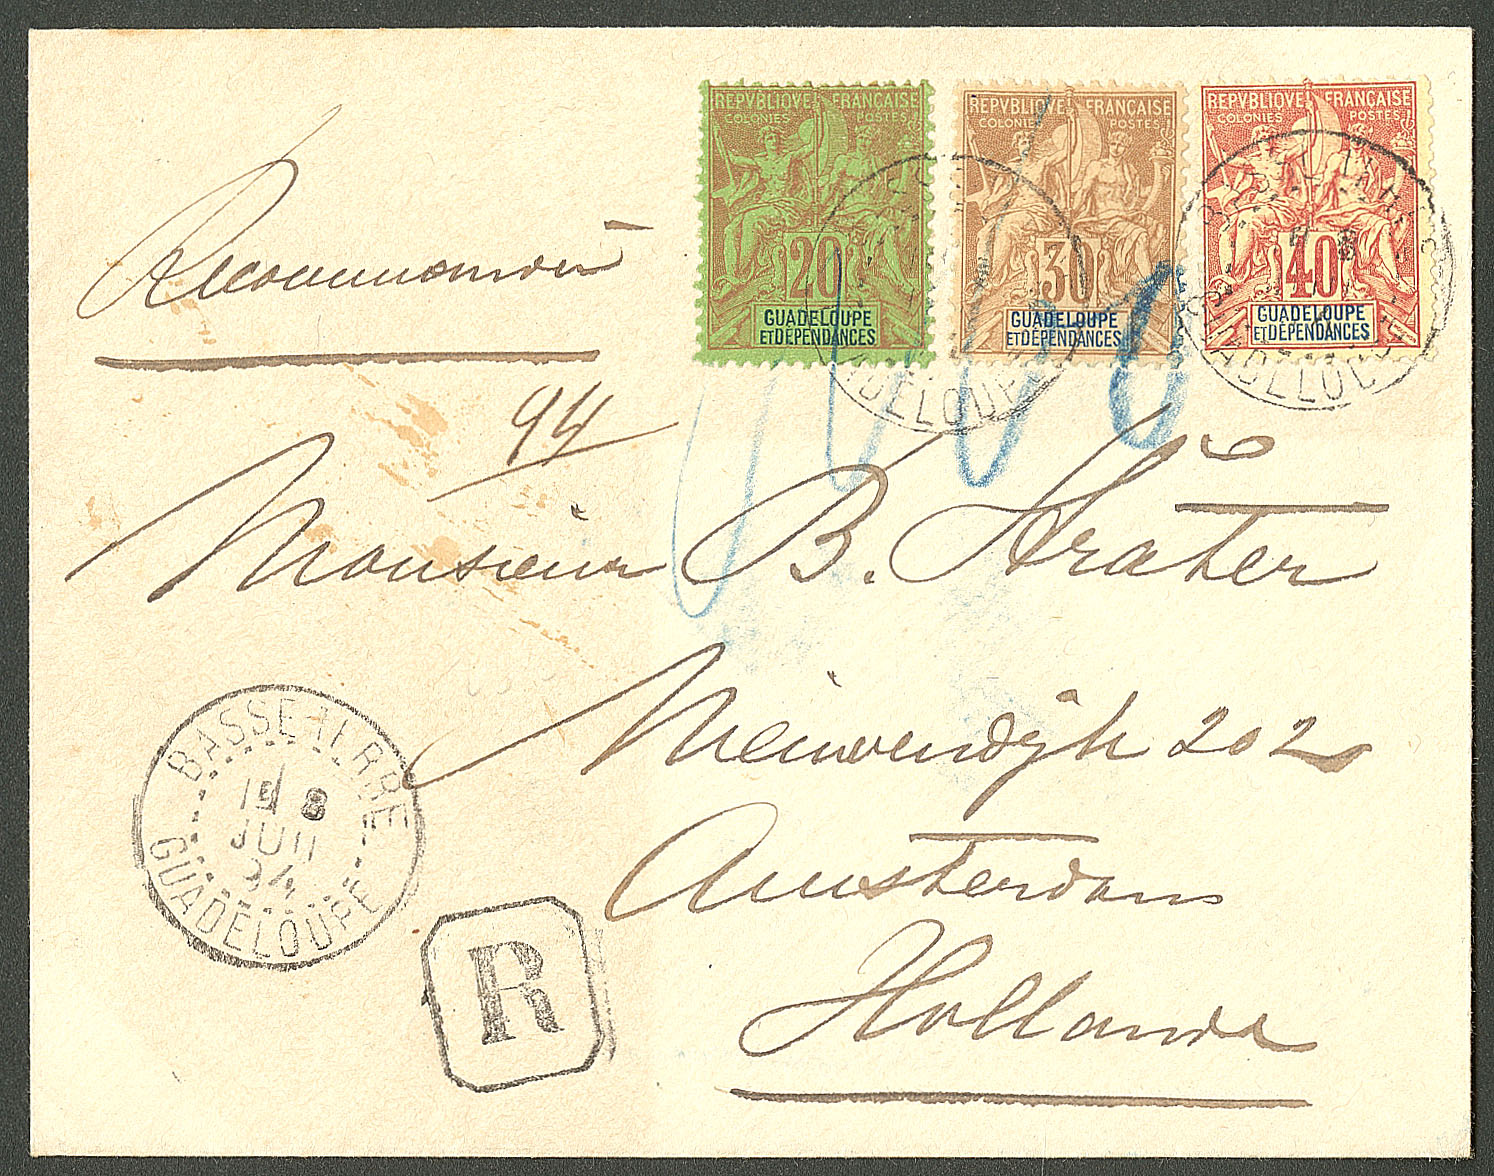 REPVBLIQVE FRANÇAISE
COLONIES POSTES
20
GUADELOUPE
ET DÉPENDANCES
REPVBLIQVE FRANÇAISE
COLONIES POSTES
30
GUADELOUPE
ET DÉPENDANCES
REPVBLIQVE FRANÇAISE
COLONIES POSTES
40
GUADELOUPE
ET DÉPENDANCES
GUADELOUPE
GUADELOUPE
Recommandée
94
Monsieur B. Sträter
Nieuwendijk 202
Amsterdam
Hollande
BASSE-TERRE
19 8
JUIL
94
GUADELOUPE
R